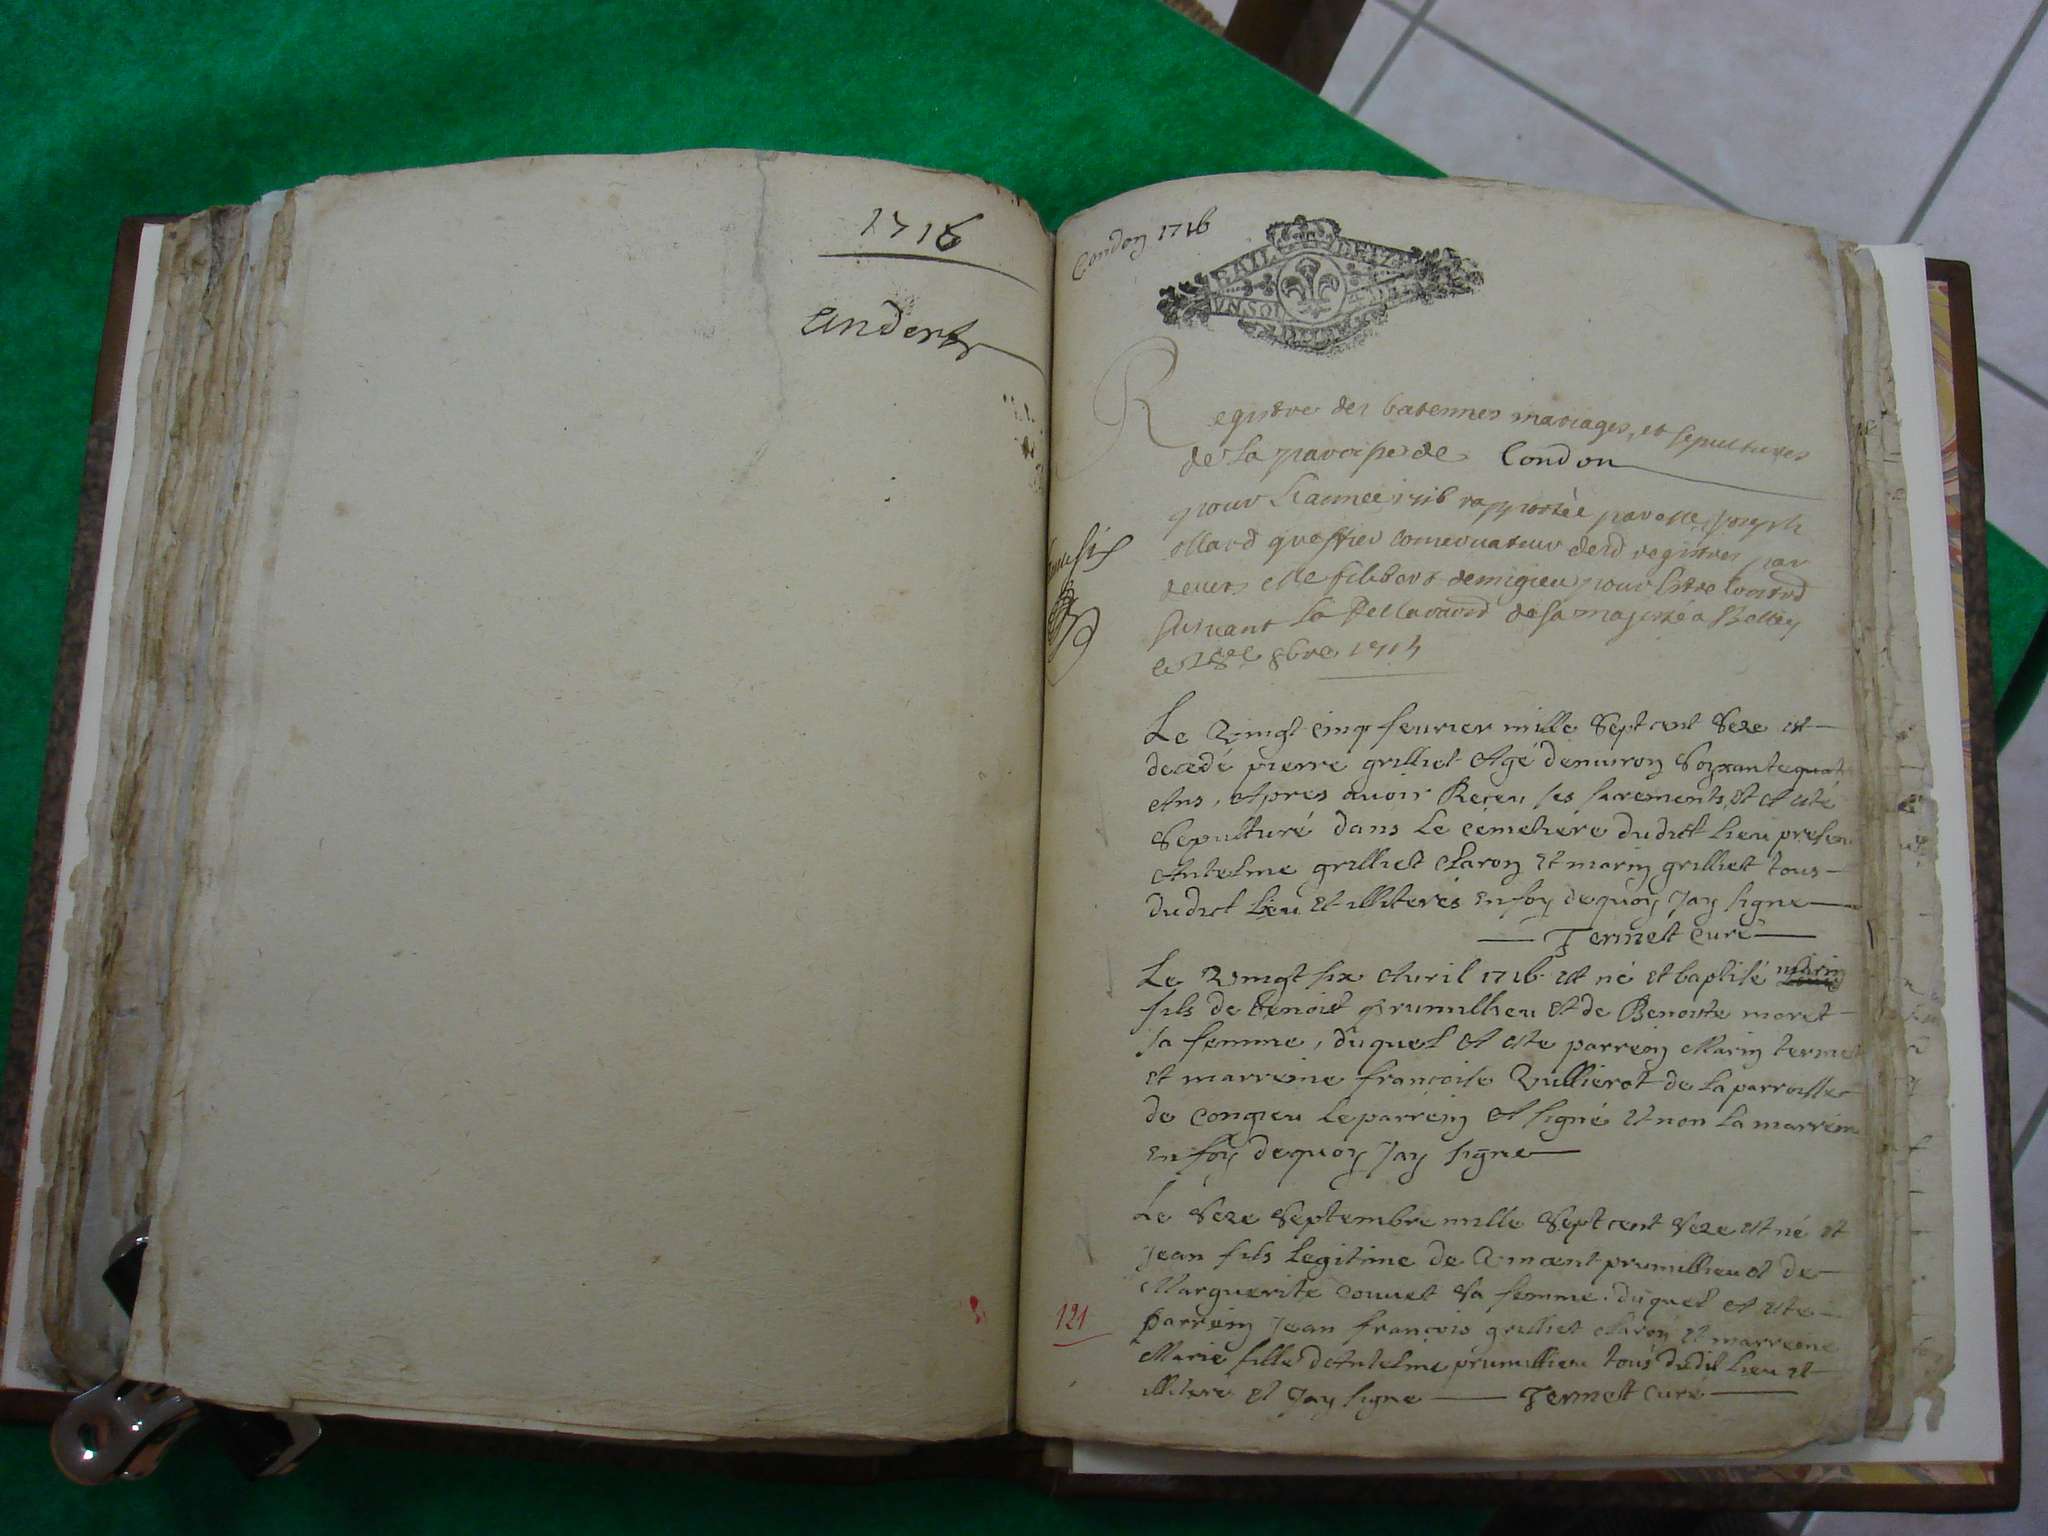 1716
Andert
Condon 1716
UN SOL
Registre des batemes mariages, et sepultures
de la paroisse de Condon
pour l'année 1716 rapportée par Me Joseph
ollard greffier conservateur desd registres par
devers Me filibert demigieu pour estre
suivant la de sa majesté a Belley
le 8bre 1715
Le vingt cinq feurier mille sept cent seze est
decedé pierre grilliet Agé denuiron soixante quat
Ans, Apres auoir Receu ses sacrements, et A esté
sepulturé dans Le cemetiére dudict lieu presen
Antelme grilliet Claron et marin grilliet tous
dudict Lieu et illiterés en foy dequoy Jay signe
Termet curé
Le vingt six Auril 1716 est né et baptisé marin
fils de benoist prumillieu et de Benoiste moret
sa femme, duquel A este parrein Marin termet
et marreine francoise Vullierot de la parroisse
de congieu Le parrein A signé et non la marrein
en foy dequoy Jay signe
Le seze Septembre mille sept cent seze est né et
Jean fils Legitime de Vincent prumillieu et de
Marguerite Couuet sa femme. duquel A este
121
parrein Jean francois grilliet Claron et marreine
Marie fille dAntelme prumillieu tous dudit Lieu et
illiteré et Jay signe Termet Curé